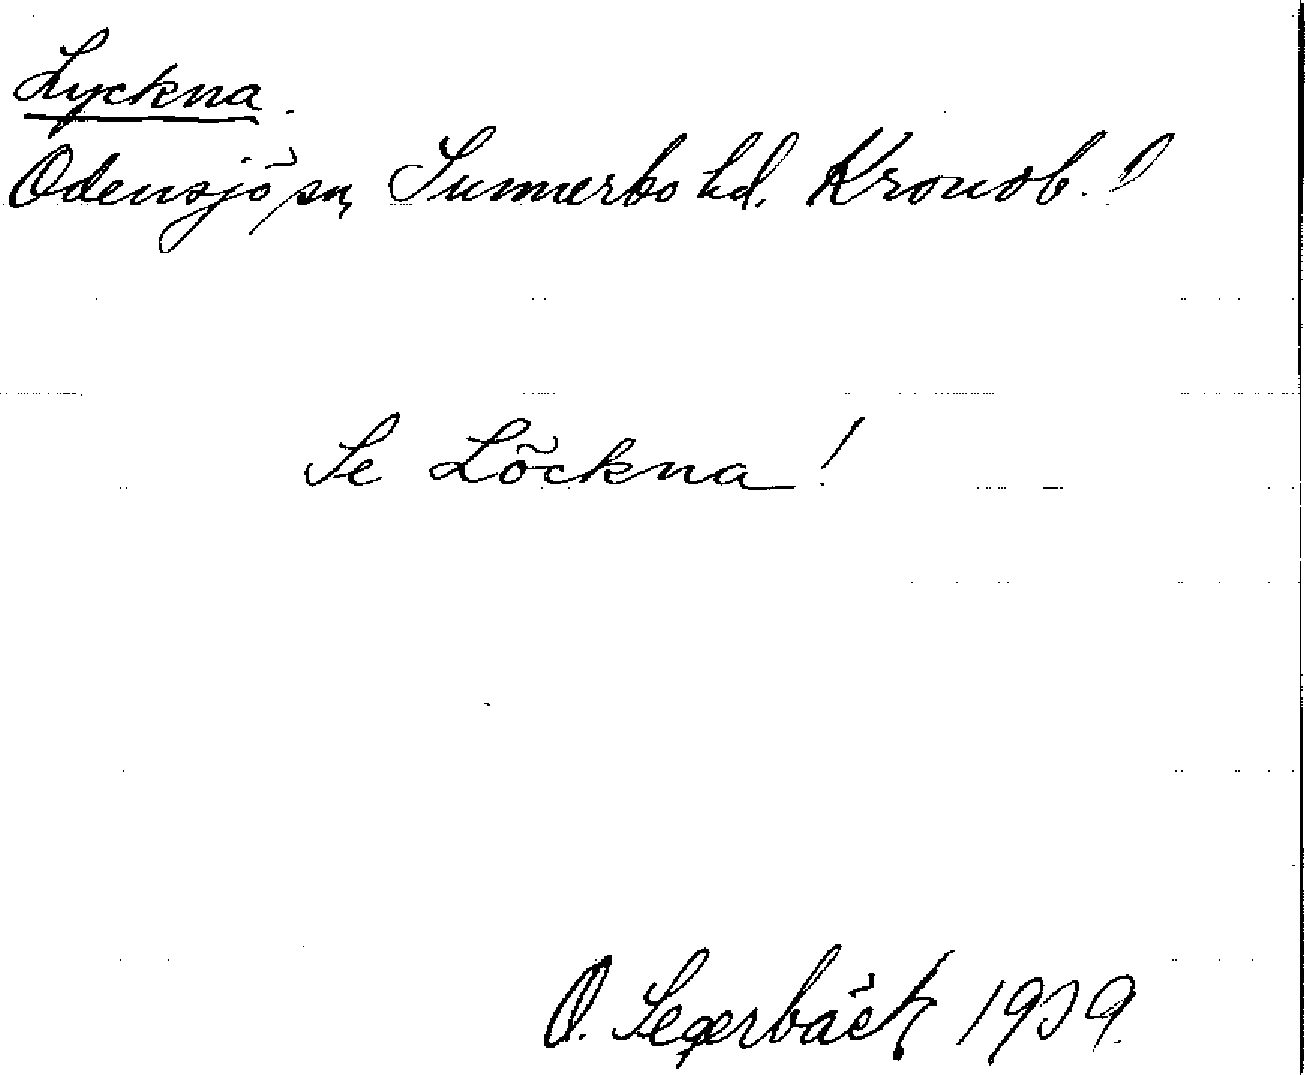 Lyckna.
Odensjö sn, Sunnerbo hd. Kronob. l
Se Löckna!
O. Segerbäck 1939.